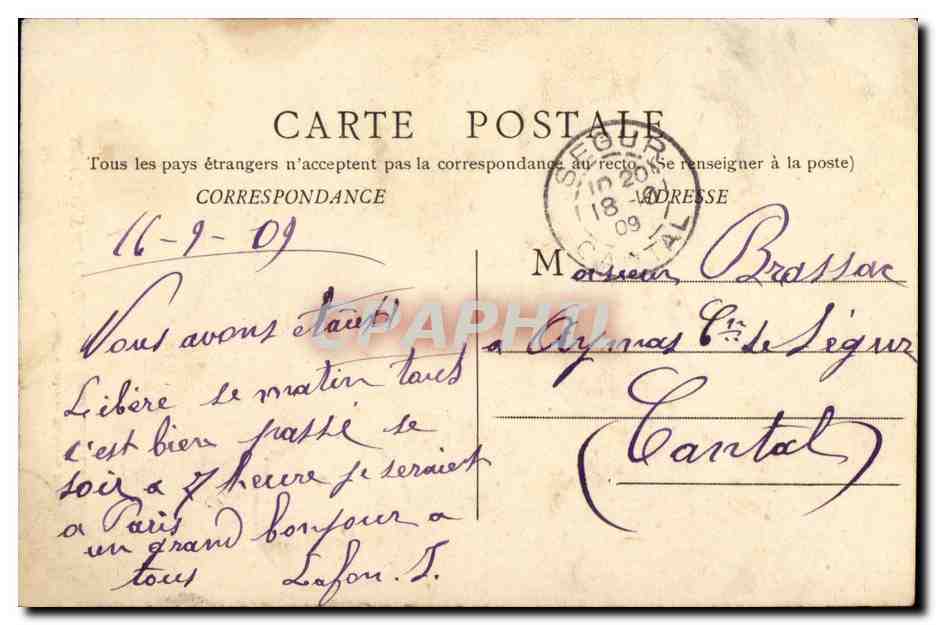 CARTE POSTALE
Tous les pays étrangers n'acceptent pas la correspondance au recto (Se renseigner à la poste)
CORRESPONDANCE
ADRESSE
SEGUR
18 -9
09
CANTAL
16-9-09
Vous avons étaient
Libère se matin tous
c'est bien passé se
soir a 7 heure je seraient
a Paris
un grand bonjour a
tous Lafon. J.
Monsieur Brassac
a Aymas Cne de Ségur
(Cantal)
CPAPHIL